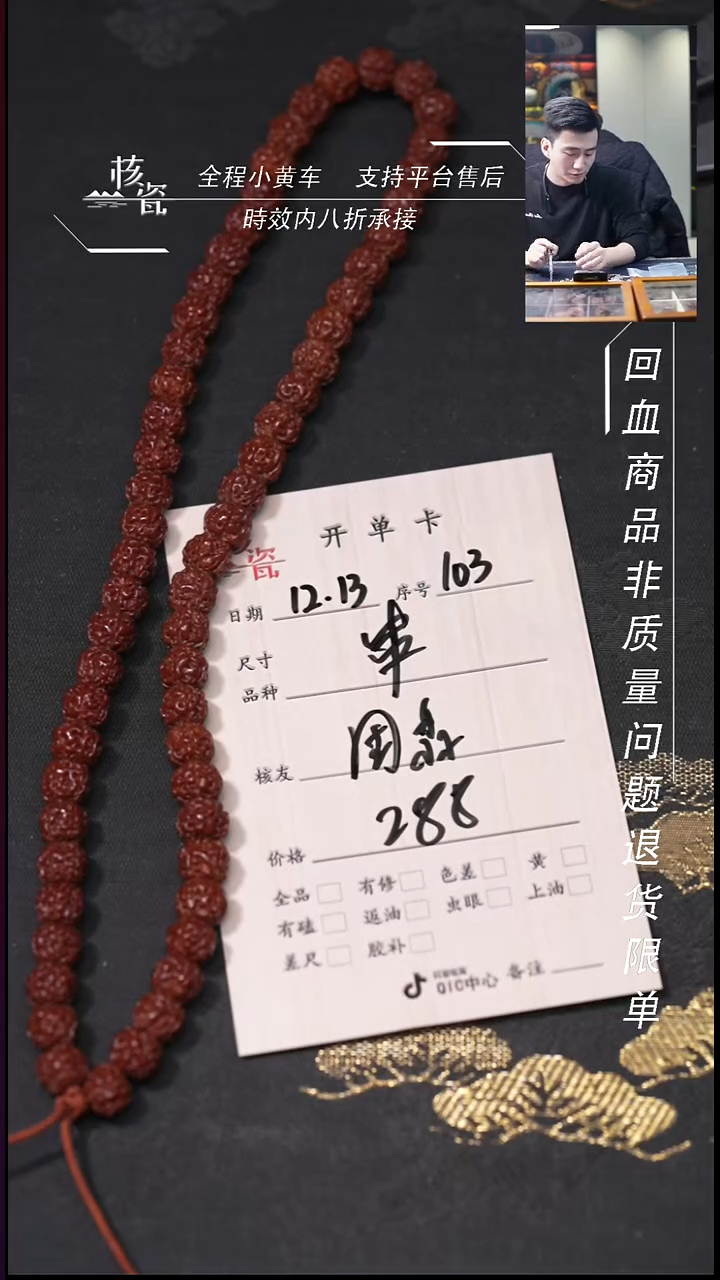 核瓷
全程小黄车 支持平台售后
時效内八折承接
回血商品非质量问题退货限单
开单卡
瓷
日期 12.13 序号 103
尺寸
品种
核友
价格 288
全品 有修 色差 黄
有磕 返油 虫眼 上油
差尺 胶补
QIC中心 备注